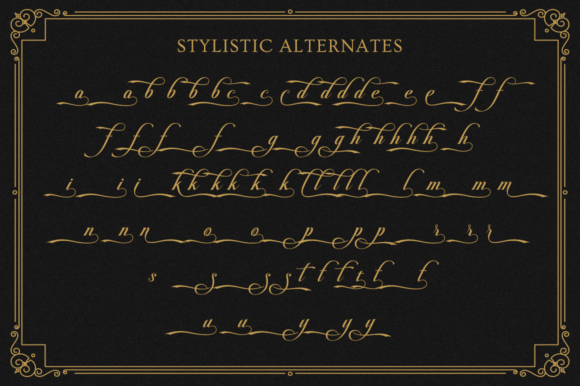 STYLISTIC ALTERNATES
a a b b b b c c d d d d e e e f f
f f f f g g g h h h h h h
i i j k k k k k k l l l l l l m m m
n n n o o p p p r r r
s s s s t t t t t t
u u y y y